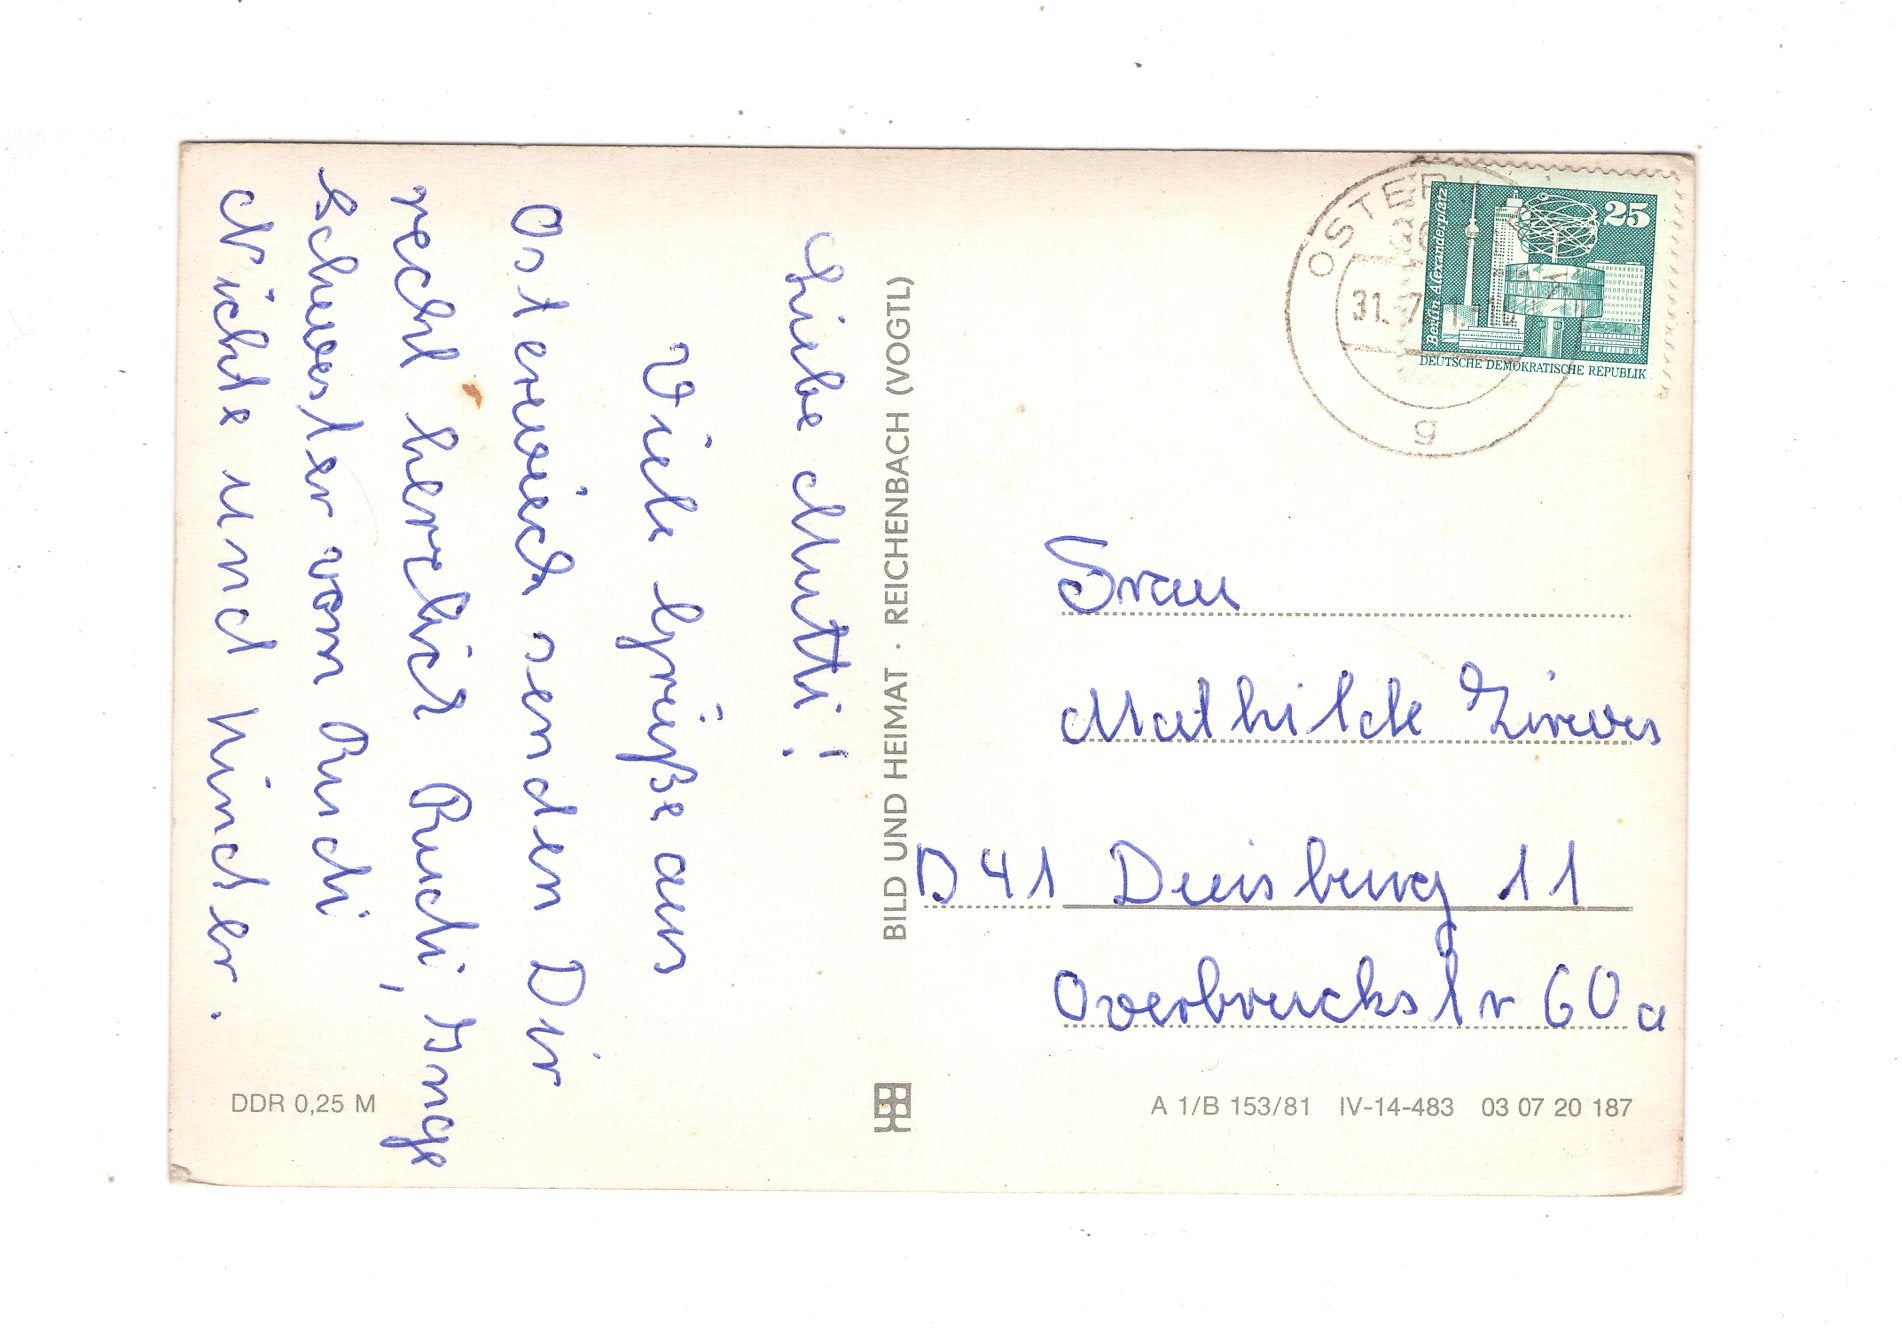 Liebe Mutti!
Viele Grüße aus
Osterwieck senden Dir
recht herzlich Rudi, Inge
Schwester von Rudi
Nichte und Kinder.
BILD UND HEIMAT · REICHENBACH (VOGTL)
DDR 0,25 M
25
Berlin-Alexanderplatz
DEUTSCHE DEMOKRATISCHE REPUBLIK
31.-7
g
Frau
Mathilde
D 41 Duisburg 11
Overbruckstr 60a
A 1/B 153/81 IV-14-483 03 07 20 187